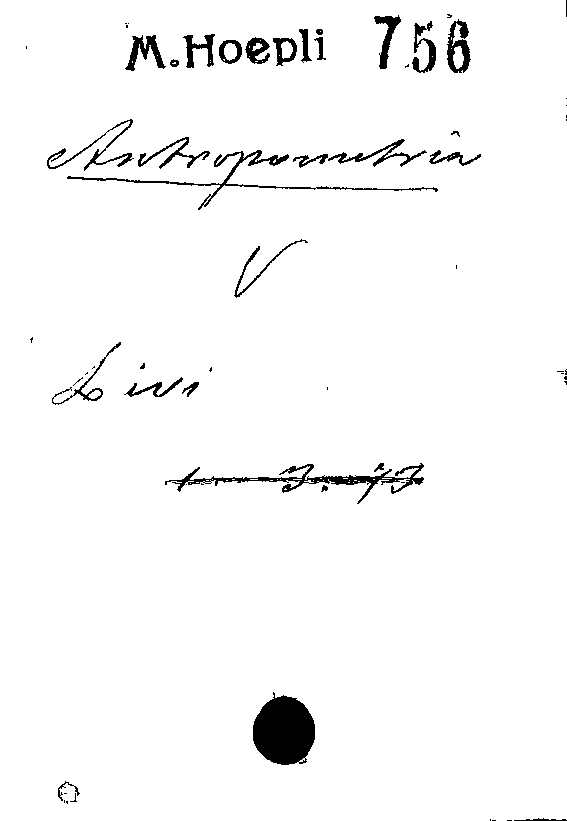 M. Hoepli 756
Antropometria
V
Livi